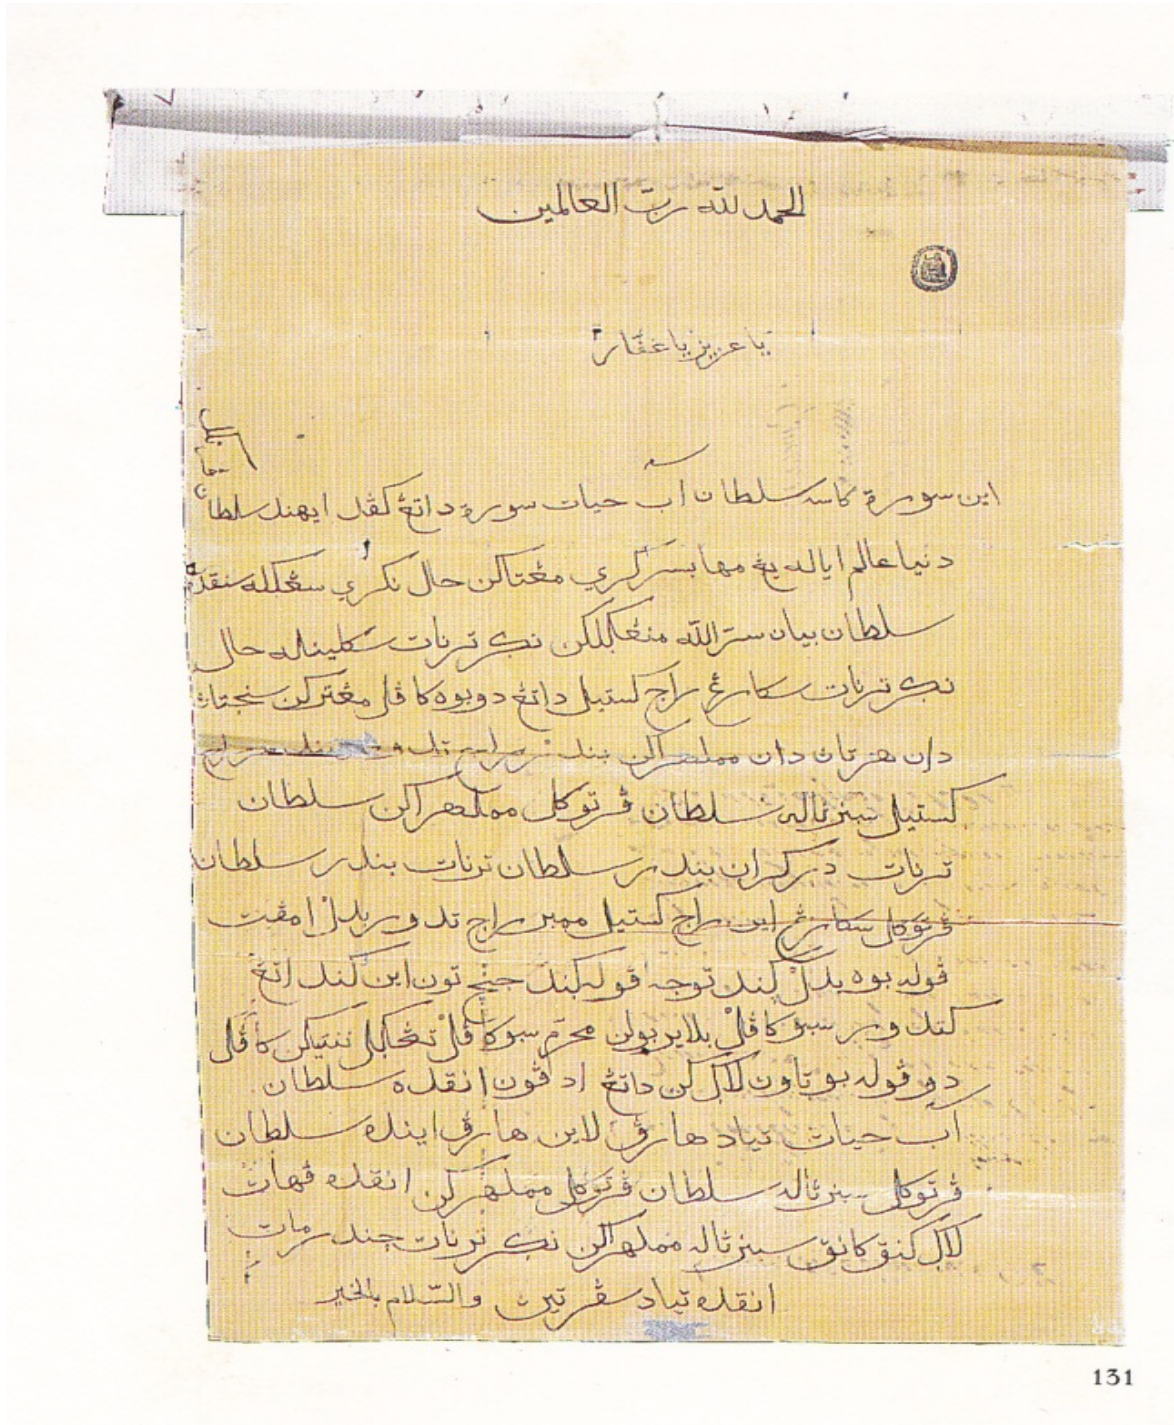 الحمد لله رب العالمين
يا عزيز يا غفار
اين سورة كاسه سلطان آب حيات سورة داتڠ كڤد ايهند سلطان
دنيا عالم اياله يڠ مها بسر كري مڠتاكن حال نكري سڠكله
سلطان بيان سر الله منڠݢلكن نكر ترنات سكلينله حال
نكر ترنات سكارڠ راج كستيل داتڠ دو بوه كاڤل مڠنتركن سنجتاث
دان هرتاث دان مملهراكن بندر
كستيل سبنرثاله سلطان ڤرتوكل مملهراكن سلطان
ترنات دركران بندر سلطان ترنات بندر سلطان
ڤرتوكل سكارڠ اين راج كستيل ممبري راج تدوري بدل امڤت
ڤوله بوه بدل كند توجه ڤوله كند جنجي تون اين كند اتڠ
كتدوري سبو كاڤل بلاير بولن محرم سبو كاڤل تڠݢل ننتيكن كاڤل
دو ڤوله بو تاون لاݢ اكن داتڠ ادڤون انقده سلطان
آب حيات تياد هارڤ لاين هارڤ ايندده سلطان
ڤرتوكل سبنرثاله سلطان ڤرتوكل مملهراكن انقده ڤهات
لاݢ كنق كانق سبنرثاله مملهراكن نكر ترنات چندرمات
انقده تياد سڤرتين والسلام بالخير
131